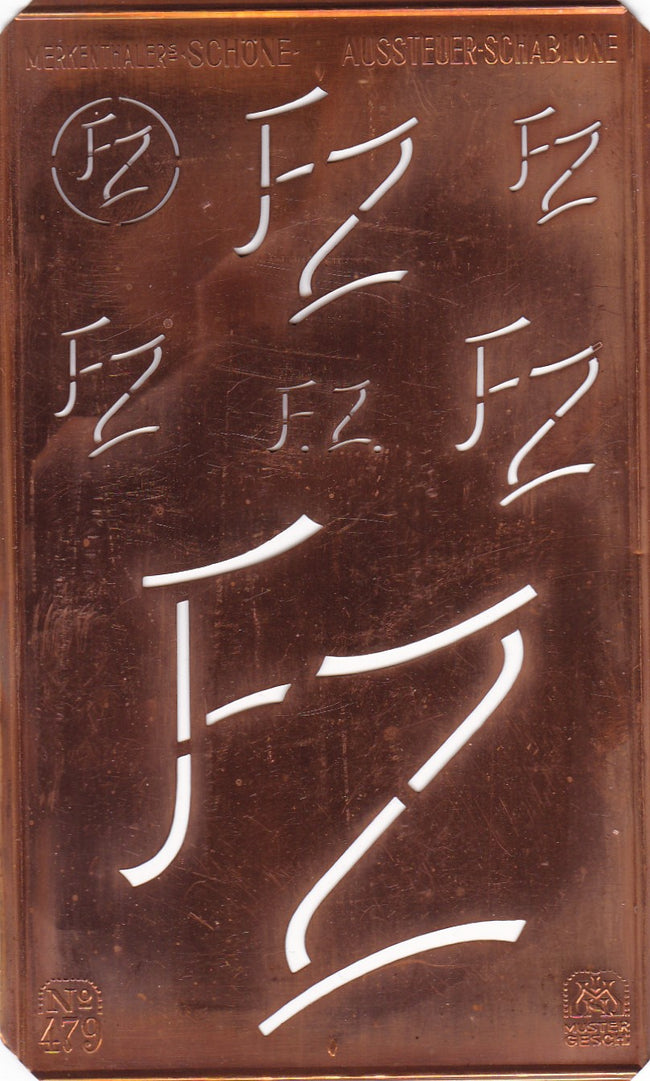 MERKENTHALERS SCHÖNE AUSSTEUER-SCHABLONE
FZ FZ FZ
FZ F.Z. FZ
FZ
No
479
M
MUSTER
GESCH.